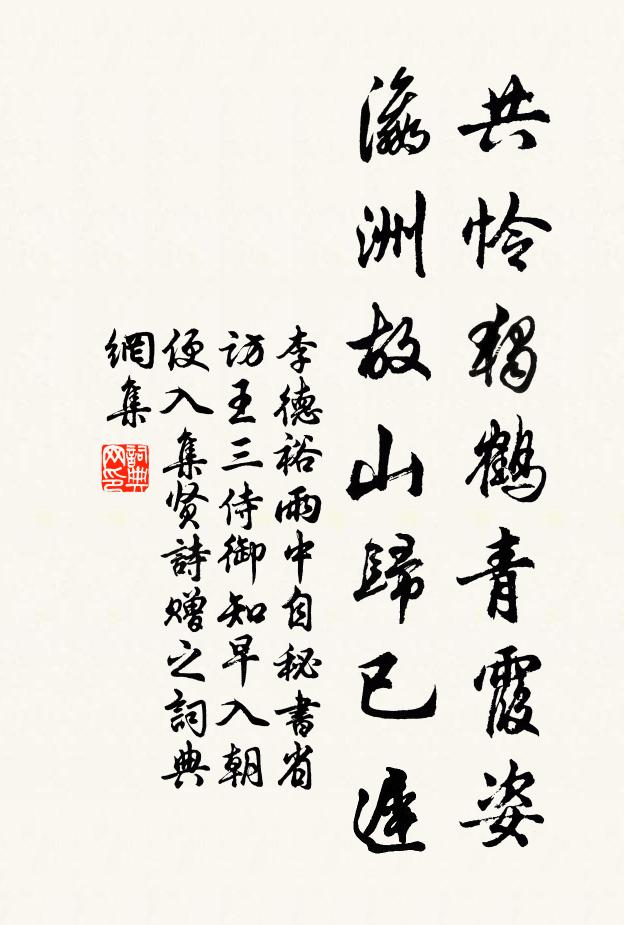 共怜独鹤青霞姿
瀛洲故山歸已遲
李德裕雨中自秘書省
访王三侍御知早入朝
便入集贤詩赠之詞典
網集
詞典
网印